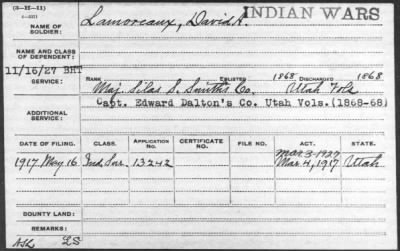 (3-IX-11)
NAME OF SOLDIER: Lamoreaux, David A. INDIAN WARS
NAME AND CLASS OF DEPENDENT:
11/16/27 BHT
SERVICE: RANK ENLISTED 1868 DISCHARGED 1868
Maj. Silas S. Smith's Co. Utah Vols
Capt. Edward Dalton's Co. Utah Vols. (1868-68)
ADDITIONAL SERVICE:
DATE OF FILING. CLASS. APPLICATION NO. CERTIFICATE NO. FILE NO. ACT. STATE.
Mar 3-1927
1917 May 16 Ind. Sur. 13242 Mar. 4, 1917 Utah
BOUNTY LAND:
REMARKS: